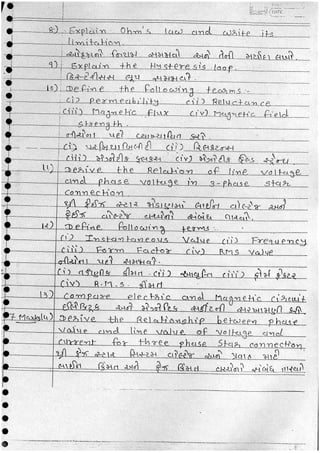 8) Explain Ohm's law and write its
limitation.
ઓહમનો નિયમ સમજાવો અને તેની મર્યાદા લખો.
9) Explain the Hysteresis loop.
હિસ્ટેરીસીસ લુપ સમજાવો.
10) Define the following tearms:-
(i) permeability (ii) Reluctance
(iii) Magnetic Flux (iv) Magnetic field
strength.
નીચેના પદો વ્યાખ્યાયિત કરો
(i) પરમિયાબિલીટી (ii) રિલક્ટન્સ
(iii) મેગ્નેટીક ફ્લક્સ (iv) મેગ્નેટીક ફિલ્ડ સ્ટ્રેન્થ
11) Derive the Relation of line voltage
and phase voltage in 3-phase star
connection.
થ્રી ફેઈઝ સ્ટાર જોડાણમાં લાઈન વોલ્ટેજ અને
ફેઈઝ વોલ્ટેજ વચ્ચેનો સંબંધ તારવો.
12) Define following terms:-
(i) Instantaneous Value (ii) Frequency
(iii) Form Factor (iv) RMS value
નીચેના પદો સમજાવો.
(i) કિંમત (ii) આવૃતિ (iii) ફોર્મ ફેક્ટર
(iv) R.M.S. કિંમત
13) compare electric and Magnetic circuit
ઈલેક્ટ્રિક અને મેગ્નેટિક સર્કીટની સરખામણી કરો.
Derive the Relationship between phase
value and line value of voltage and
current for three phase star connection.
થ્રી ફેઝ સ્ટાર વોલ્ટેજ અને માટે
લાઈન કિંમત અને ફેઝ કિંમત વચ્ચેનો સંબંધ તારવો